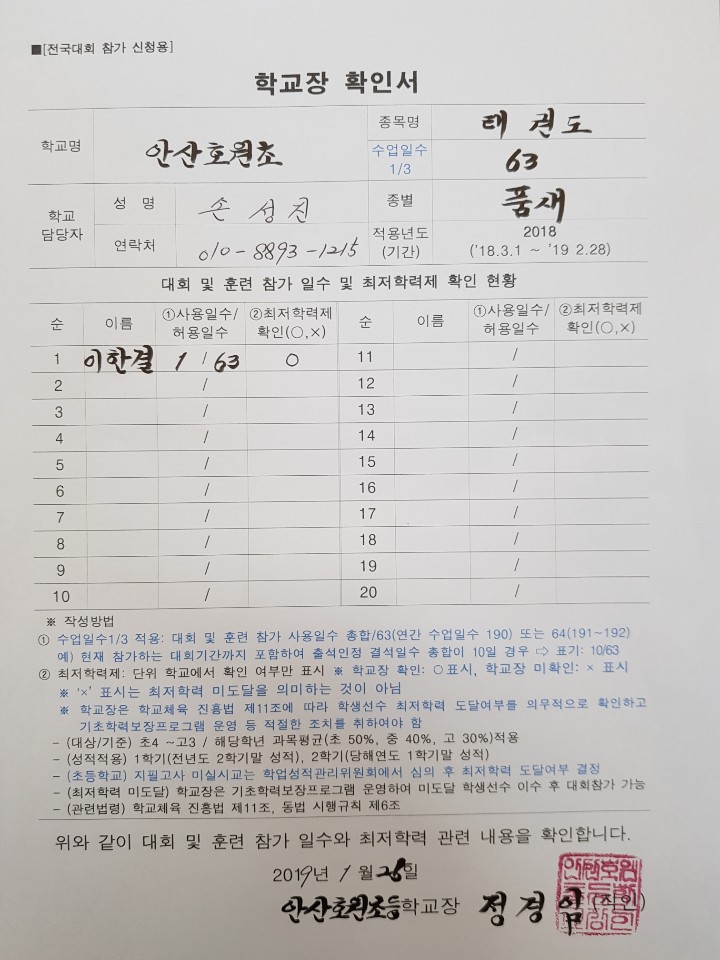 ■[전국대회 참가 신청용]
학교장 확인서
학교명 안산호원초 종목명 태권도
수업일수 1/3 63
학교 담당자 성 명 손성진 종별 품새
연락처 010-8893-1215 적용년도 (기간) 2018 ('18.3.1 ~ '19 2.28)
대회 및 훈련 참가 일수 및 최저학력제 확인 현황
순 이름 ①사용일수/허용일수 ②최저학력제 확인(○,×) 순 이름 ①사용일수/허용일수 ②최저학력제 확인(○,×)
1 이한결 1 / 63 ○ 11 /
2 / 12 /
3 / 13 /
4 / 14 /
5 / 15 /
6 / 16 /
7 / 17 /
8 / 18 /
9 / 19 /
10 / 20 /
※ 작성방법
① 수업일수1/3 적용: 대회 및 훈련 참가 사용일수 총합/63(연간 수업일수 190) 또는 64(191~192)
예) 현재 참가하는 대회기간까지 포함하여 출석인정 결석일수 총합이 10일 경우 ⇨ 표기: 10/63
② 최저학력제: 단위 학교에서 확인 여부만 표시 ※ 학교장 확인: ○표시, 학교장 미확인: × 표시
※ '×' 표시는 최저학력 미도달을 의미하는 것이 아님
※ 학교장은 학교체육 진흥법 제11조에 따라 학생선수 최저학력 도달여부를 의무적으로 확인하고
기초학력보장프로그램 운영 등 적절한 조치를 취하여야 함
- (대상/기준) 초4 ~고3 / 해당학년 과목평균(초 50%, 중 40%, 고 30%)적용
- (성적적용) 1학기(전년도 2학기말 성적), 2학기(당해연도 1학기말 성적)
- (초등학교) 지필고사 미실시교는 학업성적관리위원회에서 심의 후 최저학력 도달여부 결정
- (최저학력 미도달) 학교장은 기초학력보장프로그램 운영하여 미도달 학생선수 이수 후 대회참가 가능
- (관련법령) 학교체육 진흥법 제11조, 동법 시행규칙 제6조
위와 같이 대회 및 훈련 참가 일수와 최저학력 관련 내용을 확인합니다.
2019년 1월 28일
안산호원초등학교장 정경임 (직인)